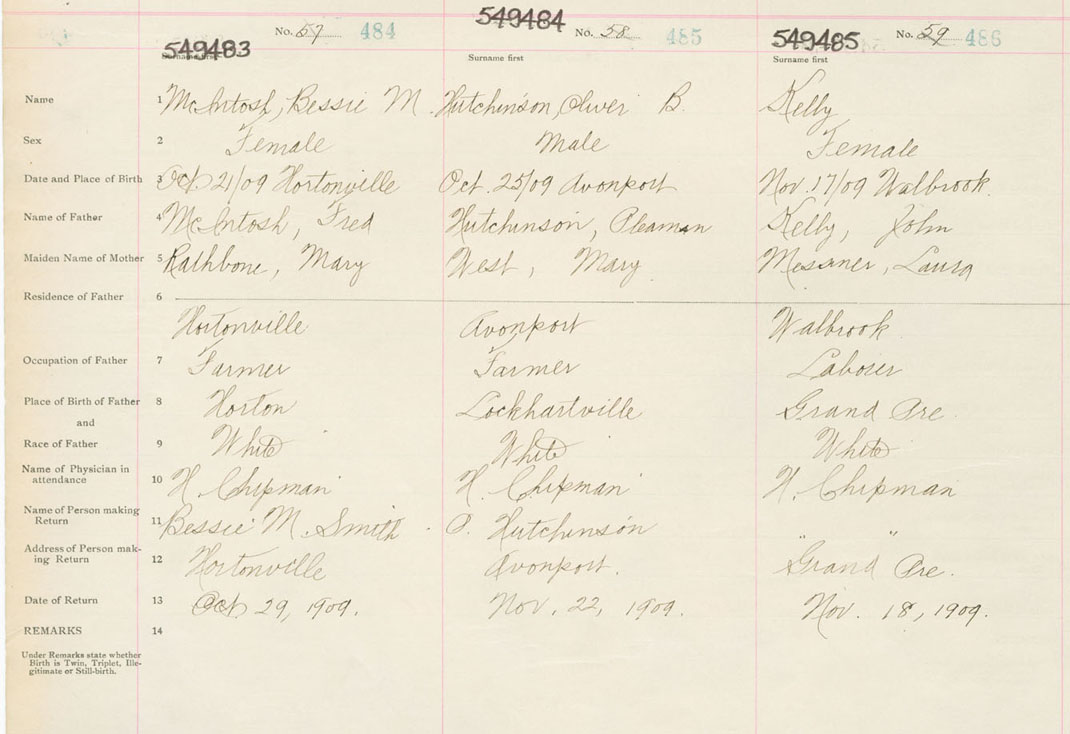 549483 No. 57 484 549484 No. 58 485 549485 No. 59 486
Surname first Surname first Surname first
Name 1 McIntosh, Bessie M. Hutchinson, Oliver B. Kelly
Sex 2 Female Male Female
Date and Place of Birth 3 Oct 21/09 Hortonville Oct. 25/09 Avonport Nov. 17/09 Walbrook.
Name of Father 4 McIntosh, Fred Hutchinson, Pleaman Kelly, John
Maiden Name of Mother 5 Rathbone, Mary West, Mary Messner, Laura
Residence of Father 6
Hortonville Avonport Walbrook
Occupation of Father 7 Farmer Farmer Laborer
Place of Birth of Father 8 Horton Lockhartville Grand Pre
and
Race of Father 9 White White White
Name of Physician in
attendance 10 H. Chipman H. Chipman H. Chipman
Name of Person making
Return 11 Bessie M. Smith P. Hutchinson " "
Address of Person mak-
ing Return 12 Hortonville Avonport. Grand Pre.
Date of Return 13 Oct 29, 1909. Nov. 22, 1909. Nov. 18, 1909.
REMARKS 14
Under Remarks state whether
Birth is Twin, Triplet, Ille-
gitimate or Still-birth.